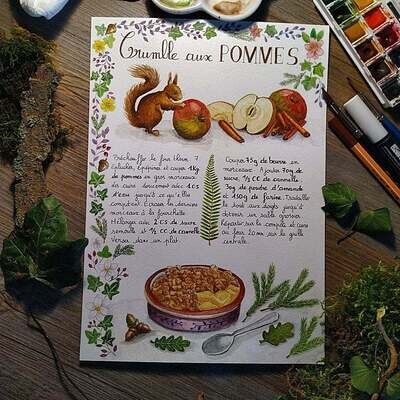 Crumble aux POMMES
Préchauffer le four therm. 7
Eplucher, épépiner et couper 1kg
de pommes en gros morceaux
les cuire doucement avec 1 CS
d'eau jusqu'à ce qu'elles
compotent. Ecraser les derniers
morceaux à la fourchette
Mélanger avec 2 CS de sucre
vanillé et ½ CC de cannelle
Verser dans un plat.
Couper 75g de beurre en
morceaux. Ajouter 70g de
sucre, ½ CC de cannelle
30g de poudre d'amande
et 150g de farine. Travailler
le tout aux doigts jusqu'à
obtenir un sable grossier
Répartir sur la compote et cuire
au four 20mn sur la grille
centrale.